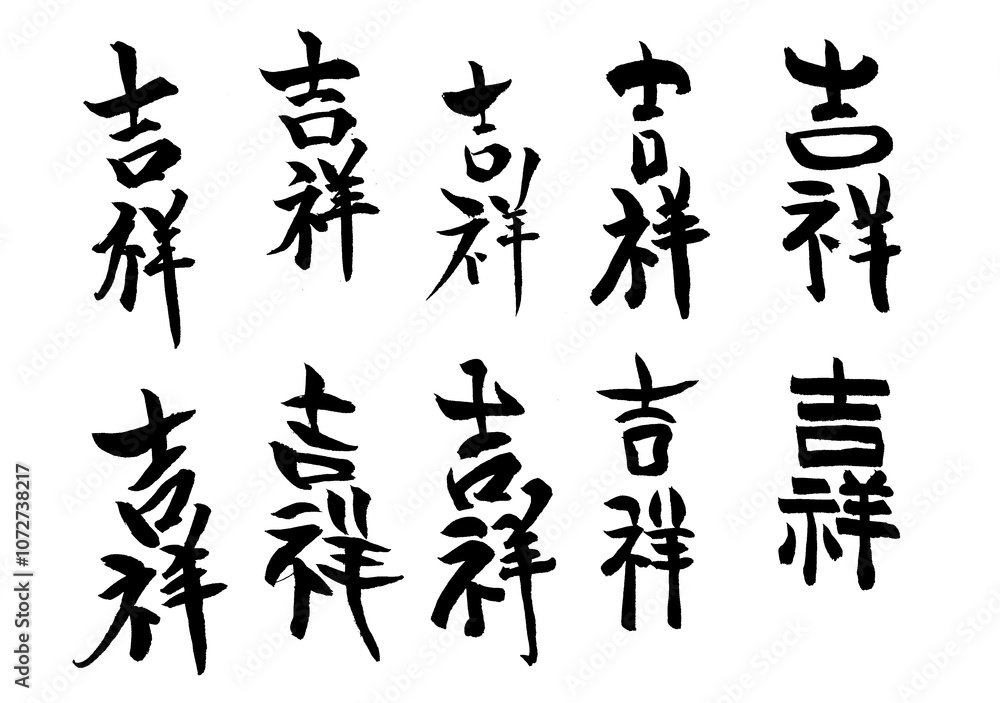 吉祥 吉祥 吉祥 吉祥 吉祥
吉祥 吉祥 吉祥 吉祥 吉祥
Adobe Stock | #1072738217